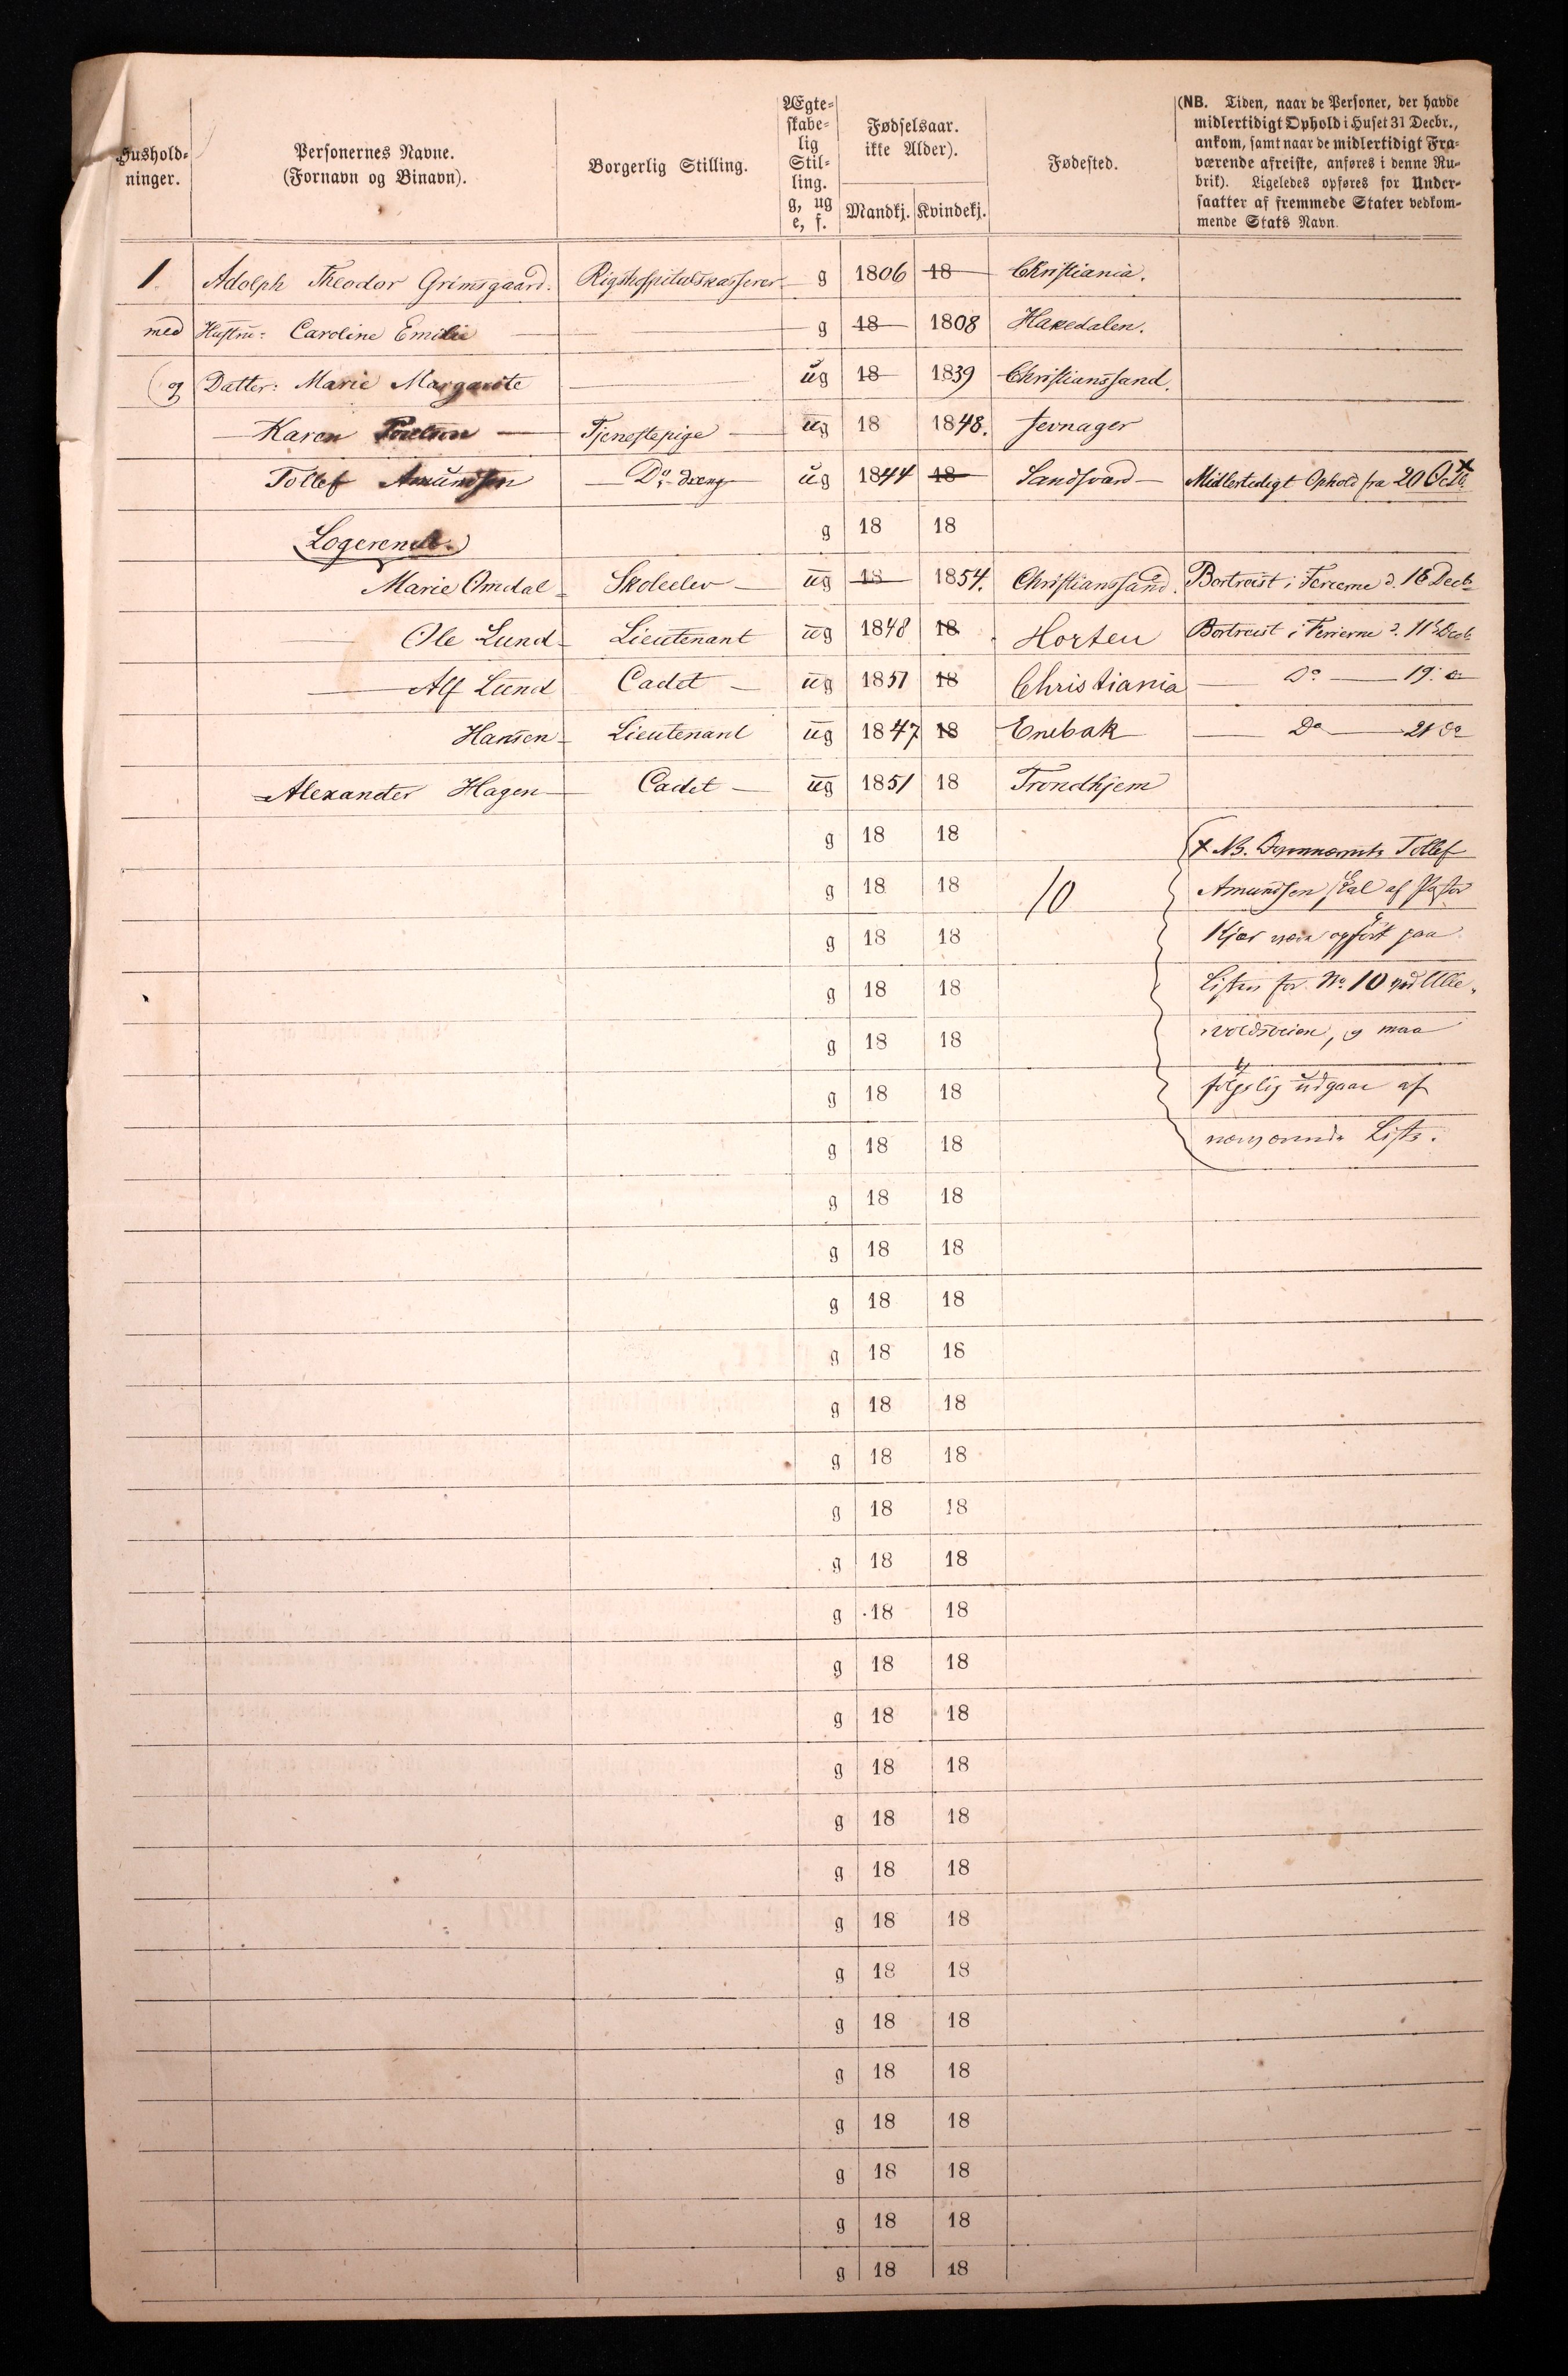 Hushold-
ninger.
Personernes Navne.
(Fornavn og Binavn).
Borgerlig Stilling.
Ægte-
skabe-
lig
Stil-
ling.
g, ug
e, f.
Fødselsaar.
ikke Alder).
Mandkj. Kvindekj.
Fødested.
(NB. Tiden, naar de Personer, der havde
midlertidigt Ophold i Huset 31 Decbr.,
ankom, samt naar de midlertidigt Fra-
værende afreiste, anføres i denne Ru-
brik). Ligeledes opføres for Under-
saatter af fremmede Stater vedkom-
mende Stats Navn.
1 Adolph Theodor Grimsgaard. Rigshospitalskasserer g 1806 18 Christiania.
med Hustru: Caroline Emilie g 18 1808 Hakedalen.
og Datter: Marie Margarete ug 18 1839 Christianssand.
Karen Tjenestepige ug 18 1848. Jevnager
Tollef Amundsen Do. dreng ug 1844 18 Sandsværd Midlertidigt Ophold fra 20 Octb. x
Logerende. g 18 18
Marie Omdal Skoleelev ug 18 1854. Christianssand. Bortreist i Ferierne d. 18 Decb
Ole Lund Lieutenant ug 1848 18 Horten Bortreist i Ferierne d. 11 Decb
Alf Lund Cadet ug 1851 18 Christiania Do 19. do
Hansen Lieutenant ug 1847 18 Enebak Do 21 do
Alexander Hagen Cadet ug 1851 18 Trondhjem
g 18 18 x NB. Tollef
g 18 18 10 Amundsen skal af Pastor
g 18 18 Kjær være opført paa
g 18 18 Listen for No. 10 ved Ulle-
g 18 18 voldsveien, og maa
g 18 18 følgelig udgaae af
g 18 18 nærværende Liste.
g 18 18
g 18 18
g 18 18
g 18 18
g 18 18
g 18 18
g 18 18
g 18 18
g 18 18
g 18 18
g 18 18
g 18 18
g 18 18
g 18 18
g 18 18
g 18 18
g 18 18
g 18 18
g 18 18
g 18 18
g 18 18
g 18 18